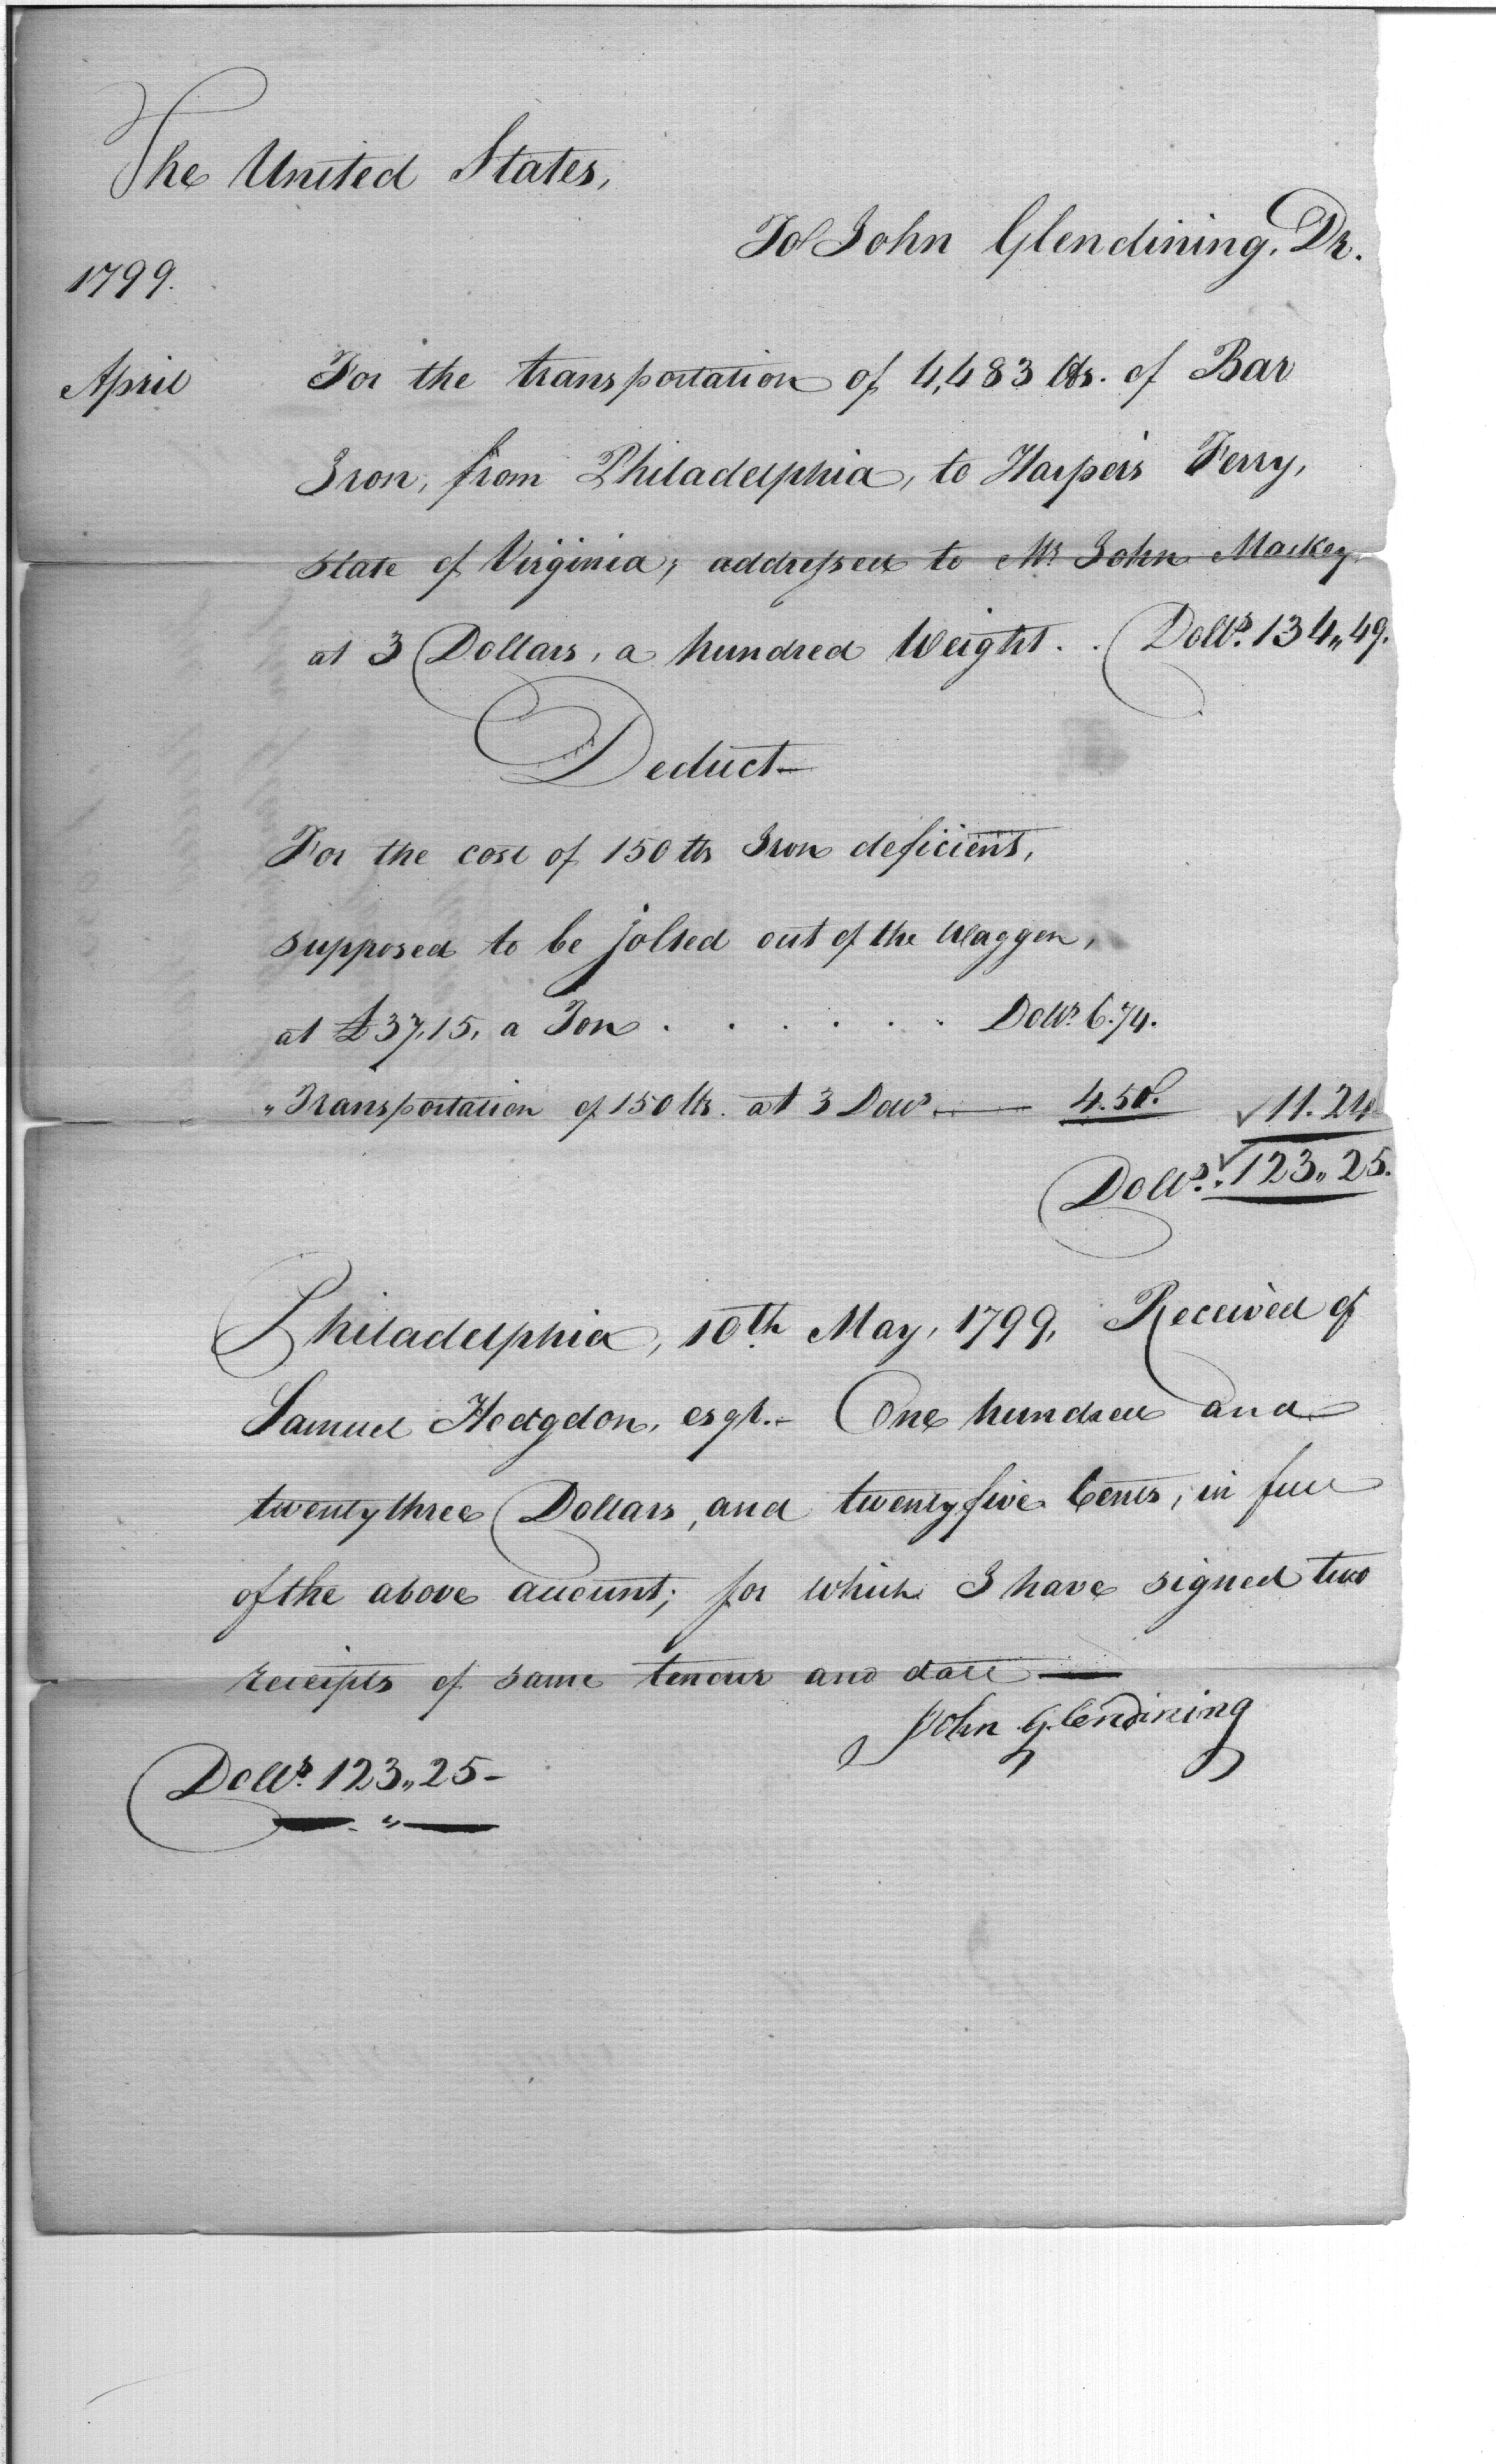 The United States,
To John Glendining, Dr.
1799.
April For the transportation of 4,483 lbs. of Bar
Iron, from Philadelphia, to Harper's Ferry,
State of Virginia; addressed to Mr John Mackey
at 3 Dollars, a hundred Weight . . Dolls. 134,,49.
Deduct
For the cost of 150 lbs Iron deficient,
supposed to be jolted out of the Waggon,
at £37,15, a Ton . . . . . . Dolls. 6.74.
" Transportation of 150 lbs. at 3 Dolls — 4.50. 11.24
Dolls. 123,,25.
Philadelphia, 10th May, 1799, Received of
Samuel Hodgdon, esqr.- One hundred and
twenty three Dollars, and twenty five Cents, in full
of the above account; for which I have signed two
receipts of same tenour and date —
John Glendining
Dolls. 123,,25-